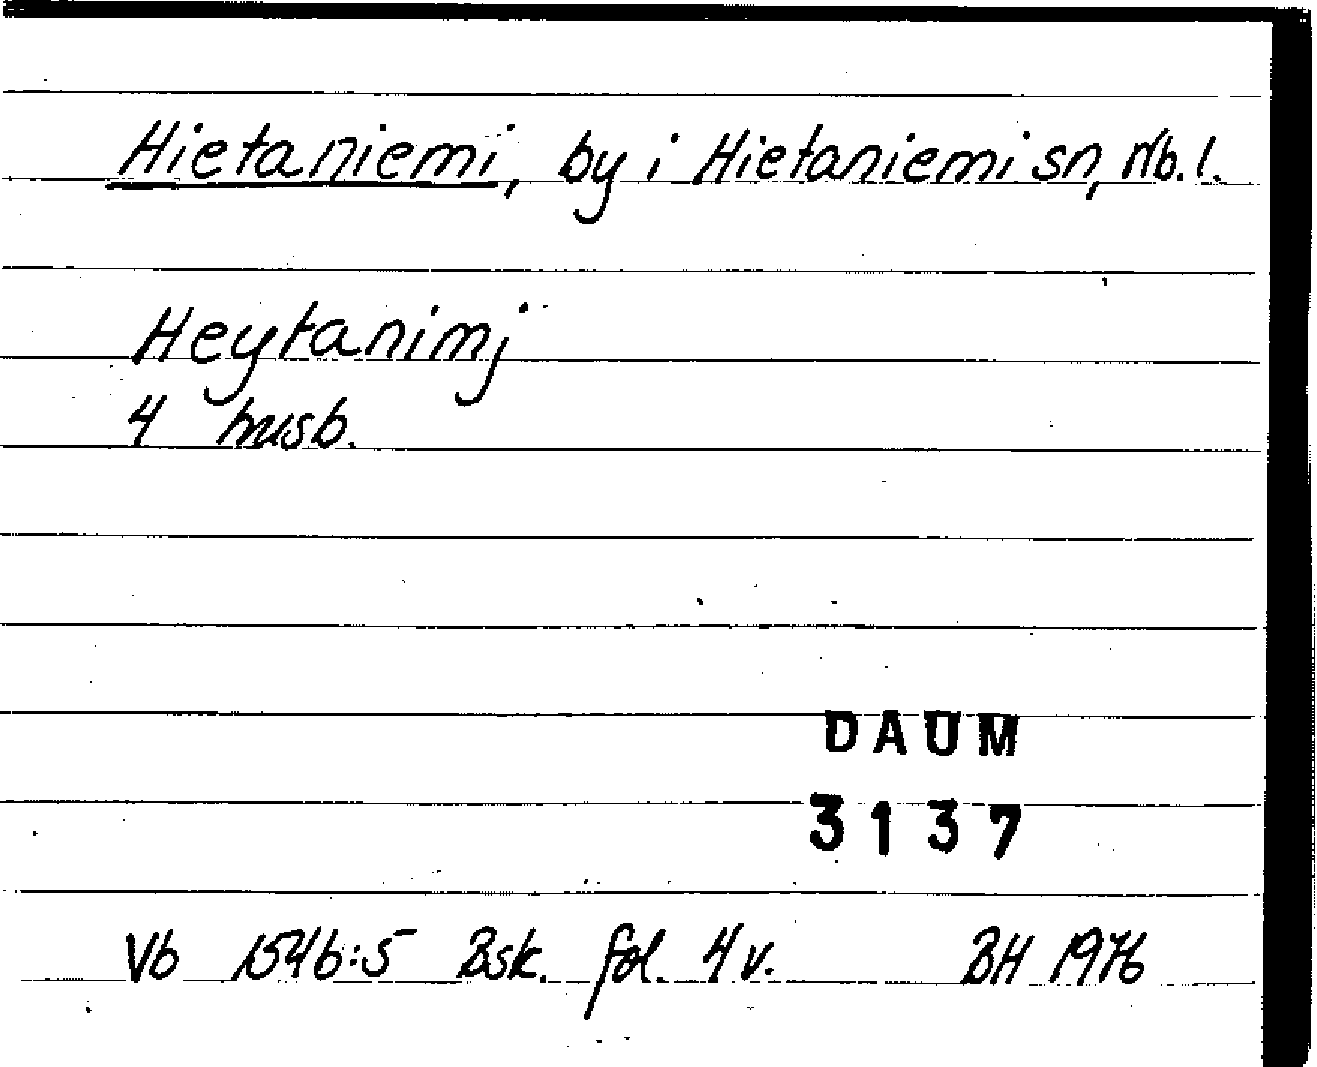 Hietaniemi, by i Hietaniemi sn, Nb. l.
Heytanimj
4 husb.
DAUM
3137
Vb 1546:5 Bsk. fol. 4 v. BH 1976